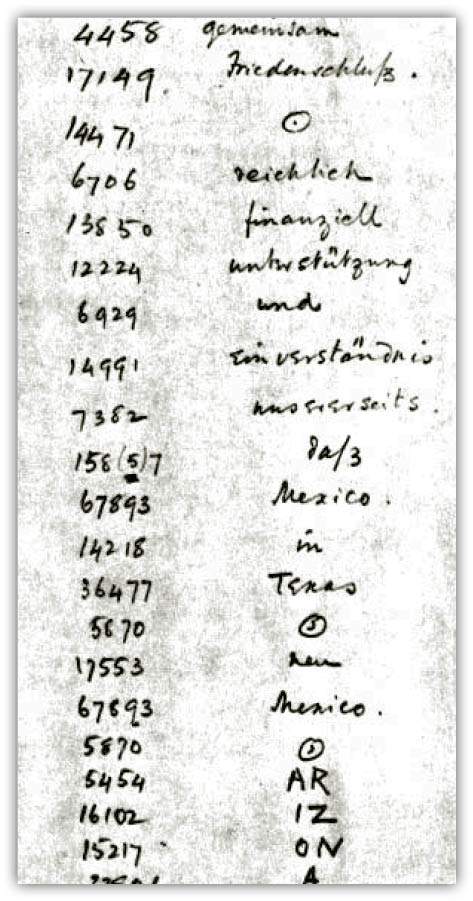 4458 gemeinsam
17149. Friedenschluß.
14471 ⊙
6706 reichlich
13850 finanziell
12224 unterstützung
6929 und
14991 einverständnis
7382 unsererseits.
158(5)7 daß
67893 Mexico.
14218 in
36477 Texas
5870 ⊙
17553 neu
67893 Mexico.
5870 ⊙
5454 AR
16102 IZ
15217 ON
A